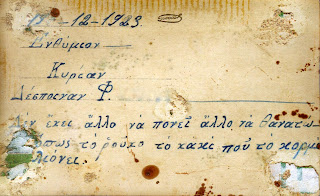 12-1923
Ενθύμιον
Κυρίαν
Δέσποιναν Φ.
Δεν έχει άλλο να πονεί άλλο τα
όπως το ρούχο το κακό που το
λιόνει.